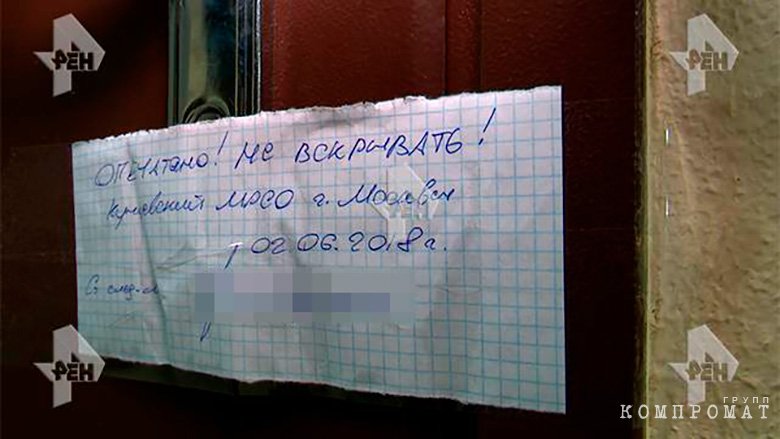 РЕН
РЕН
ОПЕЧАТАНО! НЕ ВСКРЫВАТЬ!
МРСО г. Москвы
РЕН
02.06.2018г.
Ст след-ль
РЕН
РЕН
ГРУПП
КОМПРОМАТ